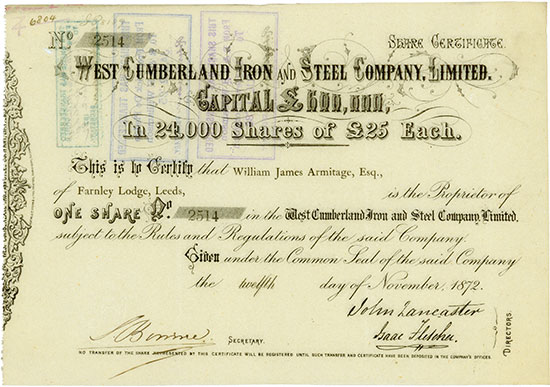 6204
No 2514
Share Certificate.
West Cumberland Iron and Steel Company, Limited.
Capital £600,000,
In 24,000 Shares of £25 Each.
This is to Certify that William James Armitage, Esq.,
of Farnley Lodge, Leeds, is the Proprietor of
ONE SHARE No 2514 in the West Cumberland Iron and Steel Company, Limited.
subject to the Rules and Regulations of the said Company
Given under the Common Seal of the said Company
the twelfth day of November, 1872.
John Lancaster
Isaac Fletcher.
DIRECTORS.
SECRETARY.
NO TRANSFER OF THE SHARE REPRESENTED BY THIS CERTIFICATE WILL BE REGISTERED UNTIL SUCH TRANSFER AND CERTIFICATE HAVE BEEN DEPOSITED IN THE COMPANY'S OFFICES.